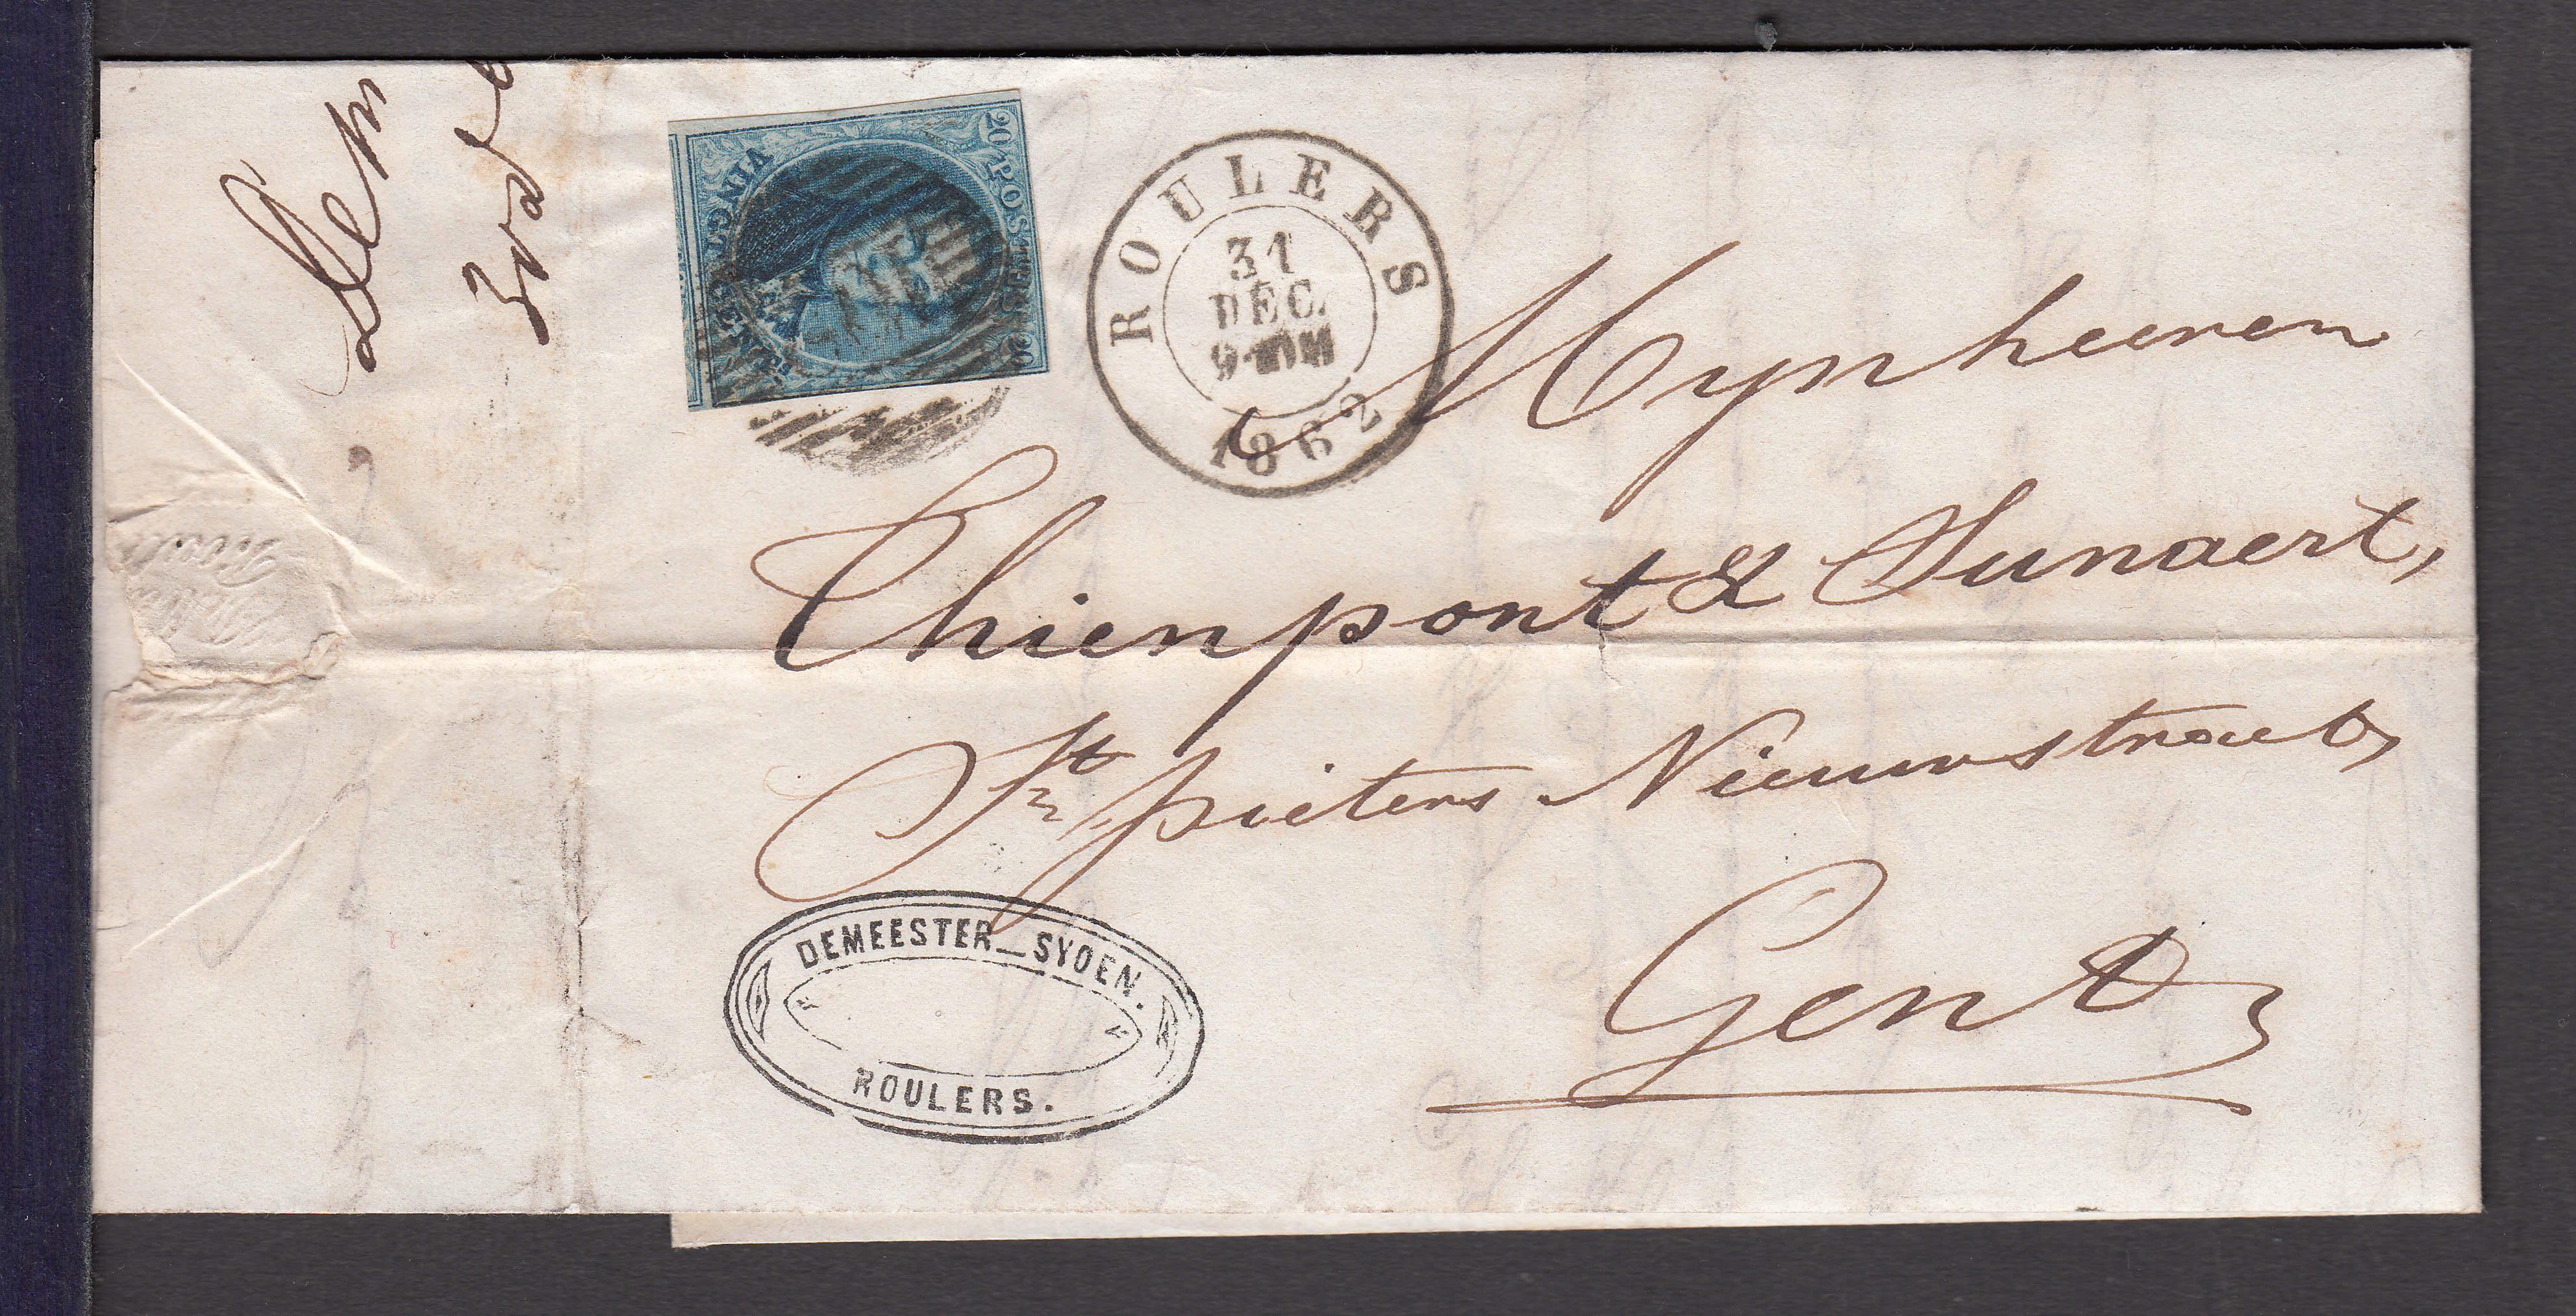 20 POSTES 20
VINGT
ROULERS
31
DEC.
9-
1862
Mynheeren
Thienpont & Sunaert,
St. pieters Nieuwstraat,
Gent
DEMEESTER_SYOEN.
ROULERS.
Dem